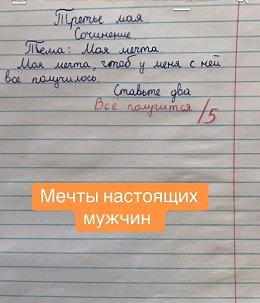 Третье мая
Сочинение
Тема: Моя мечта.
Моя мечта, чтоб у меня с ней
всё получилось.
Ставьте два
Всё получится /5
Мечты настоящих
мужчин